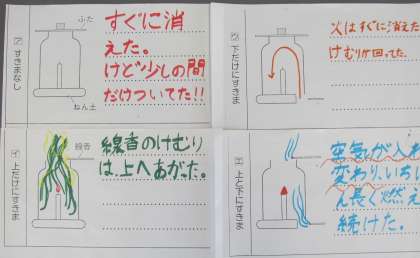 すきまなし
ふた
ねん土
すぐに消
えた。
けど少しの間
だけついてた!!
下だけにすきま
火はすぐに消えた
けむりが回ってた。
上だけにすきま
線香
線香のけむり
は、上へあがった。
上と下にすきま
空気が入れ
変わり、いちば
ん長く燃え
続けた。